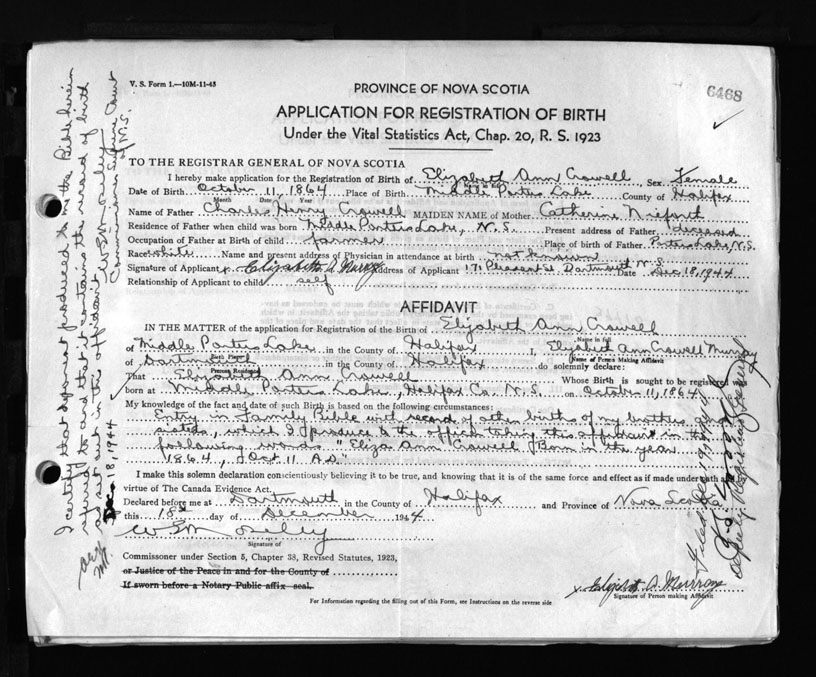 V. S. Form 1.—10M-11-43
6468
PROVINCE OF NOVA SCOTIA
APPLICATION FOR REGISTRATION OF BIRTH
Under the Vital Statistics Act, Chap. 20, R. S. 1923
TO THE REGISTRAR GENERAL OF NOVA SCOTIA
I hereby make application for the Registration of Birth of Elizabeth Ann Crowell, Sex Female
Date of Birth October 11, 1864 Place of Birth Middle Porters Lake County of Halifax
Month Date Year
Name of Father Charles Henry Crowell MAIDEN NAME of Mother Catherine
Residence of Father when child was born Middle Porters Lake, N.S. Present address of Father deceased
Occupation of Father at Birth of child farmer Place of birth of Father Porters Lake, N.S.
Race white Name and present address of Physician in attendance at birth not known
Signature of Applicant x Elizabeth A. Murray Address of Applicant 171 Pleasant St. Dartmouth N.S. Date Dec 18, 1944
Relationship of Applicant to child self
AFFIDAVIT
IN THE MATTER of the application for Registration of the Birth of Elizabeth Ann Crowell
Name in full
of Middle Porters Lake in the County of Halifax I, Elizabeth Ann Crowell Murray
Birth Place Name of Person Making Affidavit
of Dartmouth in the County of Halifax do solemnly declare:
Person Resided
That Elizabeth Ann Crowell Whose Birth is sought to be registered was
born at Middle Porters Lake, Halifax Co. N.S. on October 11, 1864
My knowledge of the fact and date of such Birth is based on the following circumstances:
Entry in Family Bible with record of other births of my brothers &
sisters, which I produce to the officer taking this affidavit in the
following words "Eliza Ann Crowell Born in the year
1864, Oct 11 A.D."
I make this solemn declaration conscientiously believing it to be true, and knowing that it is of the same force and effect as if made under oath and by
virtue of The Canada Evidence Act.
Declared before me at Dartmouth in the County of Halifax and Province of Nova Scotia
this 18th day of December 1944
Signature of
Commissoner under Section 5, Chapter 38, Revised Statutes, 1923,
or Justice of the Peace in and for the County of
If sworn before a Notary Public affix seal.
x Elizabeth A. Murray
Signature of Person making Affidavit
For Information regarding the filling out of this Form, see Instructions on the reverse side
I certify that deponent produced to me the Bible herein
referred to and that it contains the record of birth
as set out in the affidavit
Dec 18, 1944
Commissioner Supreme Court
of N.S.
Filed
Deputy Registrar General